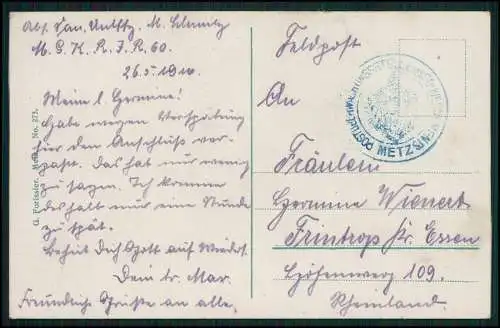 Abs. San. Untffz. M. Schmitz
M. G. K. R. I. R. 60.
26.5.1916.
Meine l. Hermine!
Habe wegen Verspätung
für den Anschluß ver-
paßt. das hat nur wenig
zu sagen. Ich komme
deshalb nur eine Stunde
zu spät.
Behüt Dich Gott auf Wieders.
Dein tr. Max.
Freundliche Grüße an alle.
G. Parissier, Metz No. 273.
Feldpost
An
Fräulein
Hermine Wienert
Frintrop Kr. Essen
Höhenweg 109.
Rheinland.
METZ